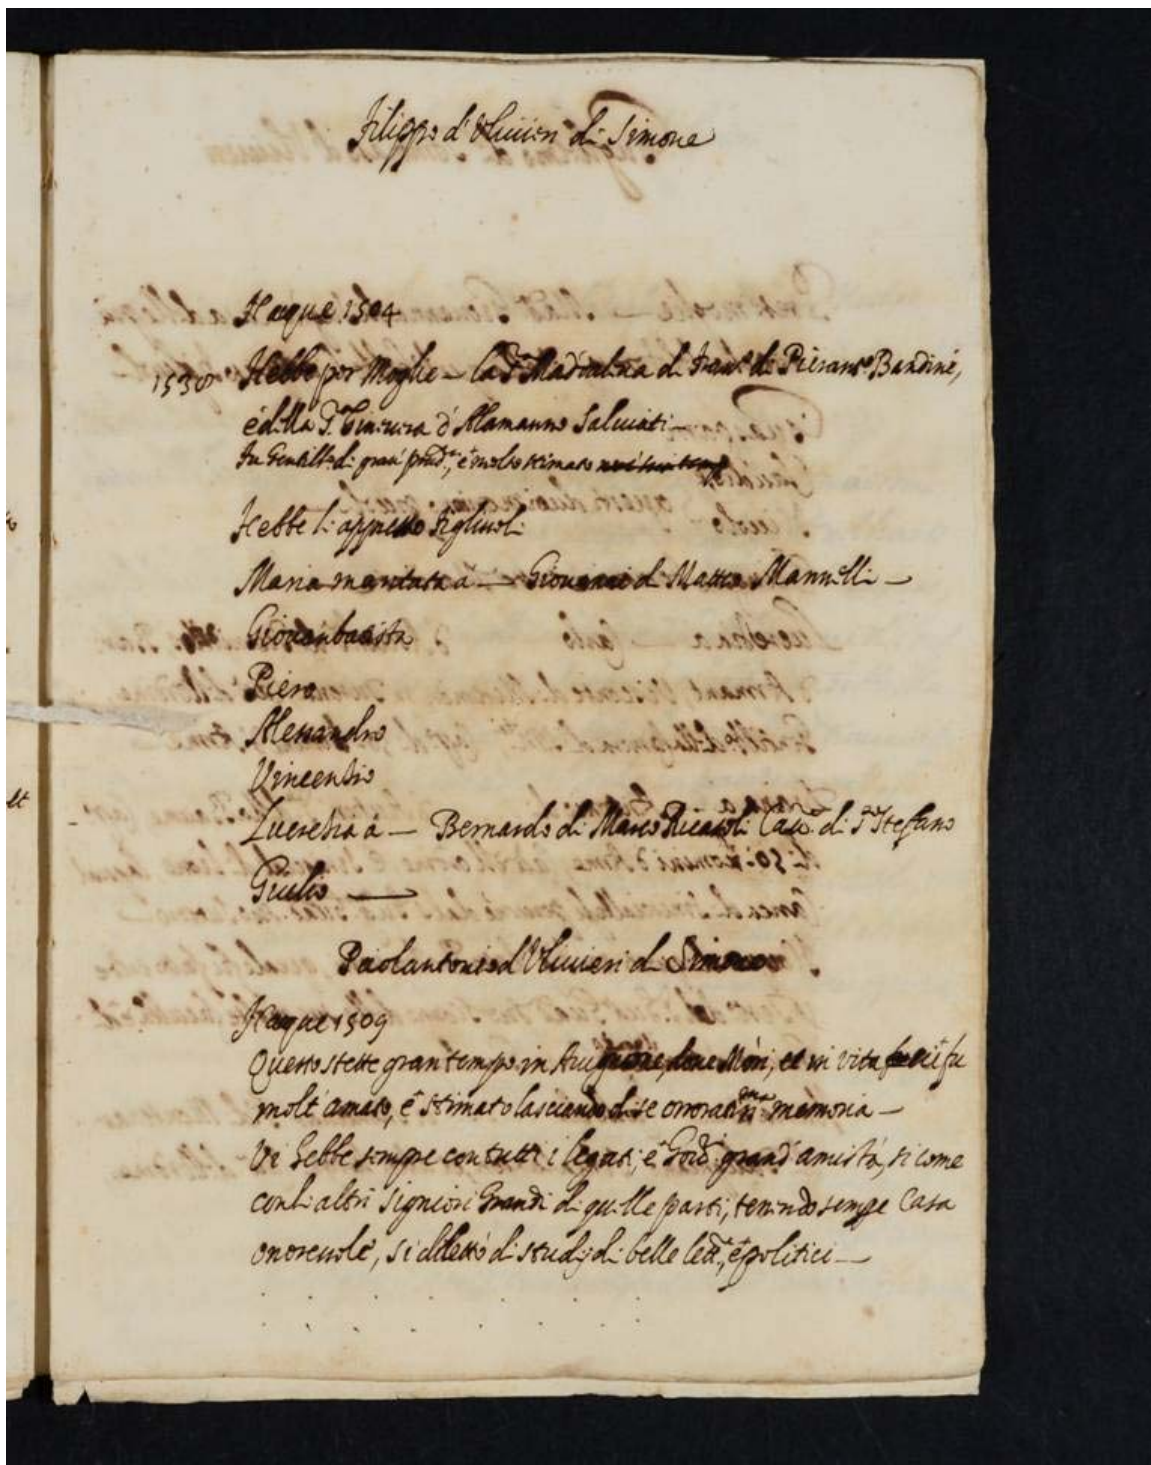 Filippo d'Ulivieri di Simone
Nacque 1504
1530 Hebbe per Moglie — la Sra Madalena di Franco di Pieranto Bandini,
é della Sa Ginevra d'Alamanno Salviati —
Fu Gentilhuo di gran prudza, é molto stimato
Hebbe li appresso figliuoli
Maria maritata á — Giovanni di Matteo Mannelli —
Giovanbatista
Piero
Alessandro
Vincentio
Lucretia á — Bernardo di Marco Ricasoli Caure di Sto Stefano
Giulio —
Paolantonio d'Ulivieri di Simone
Nacque 1509
Questo stette gran tempo in Avignone, dove Morì, et in vita fu
molt'amato, é stimato lasciando di se onoratissima memoria —
Vi hebbe sempre con tutti i legati, é grand'amistá, si come
con li altri Signiori Grandi di quelle parti, tenendo sempre Casa
onorevole, si dilettó di studij di belle lettre, é politici —